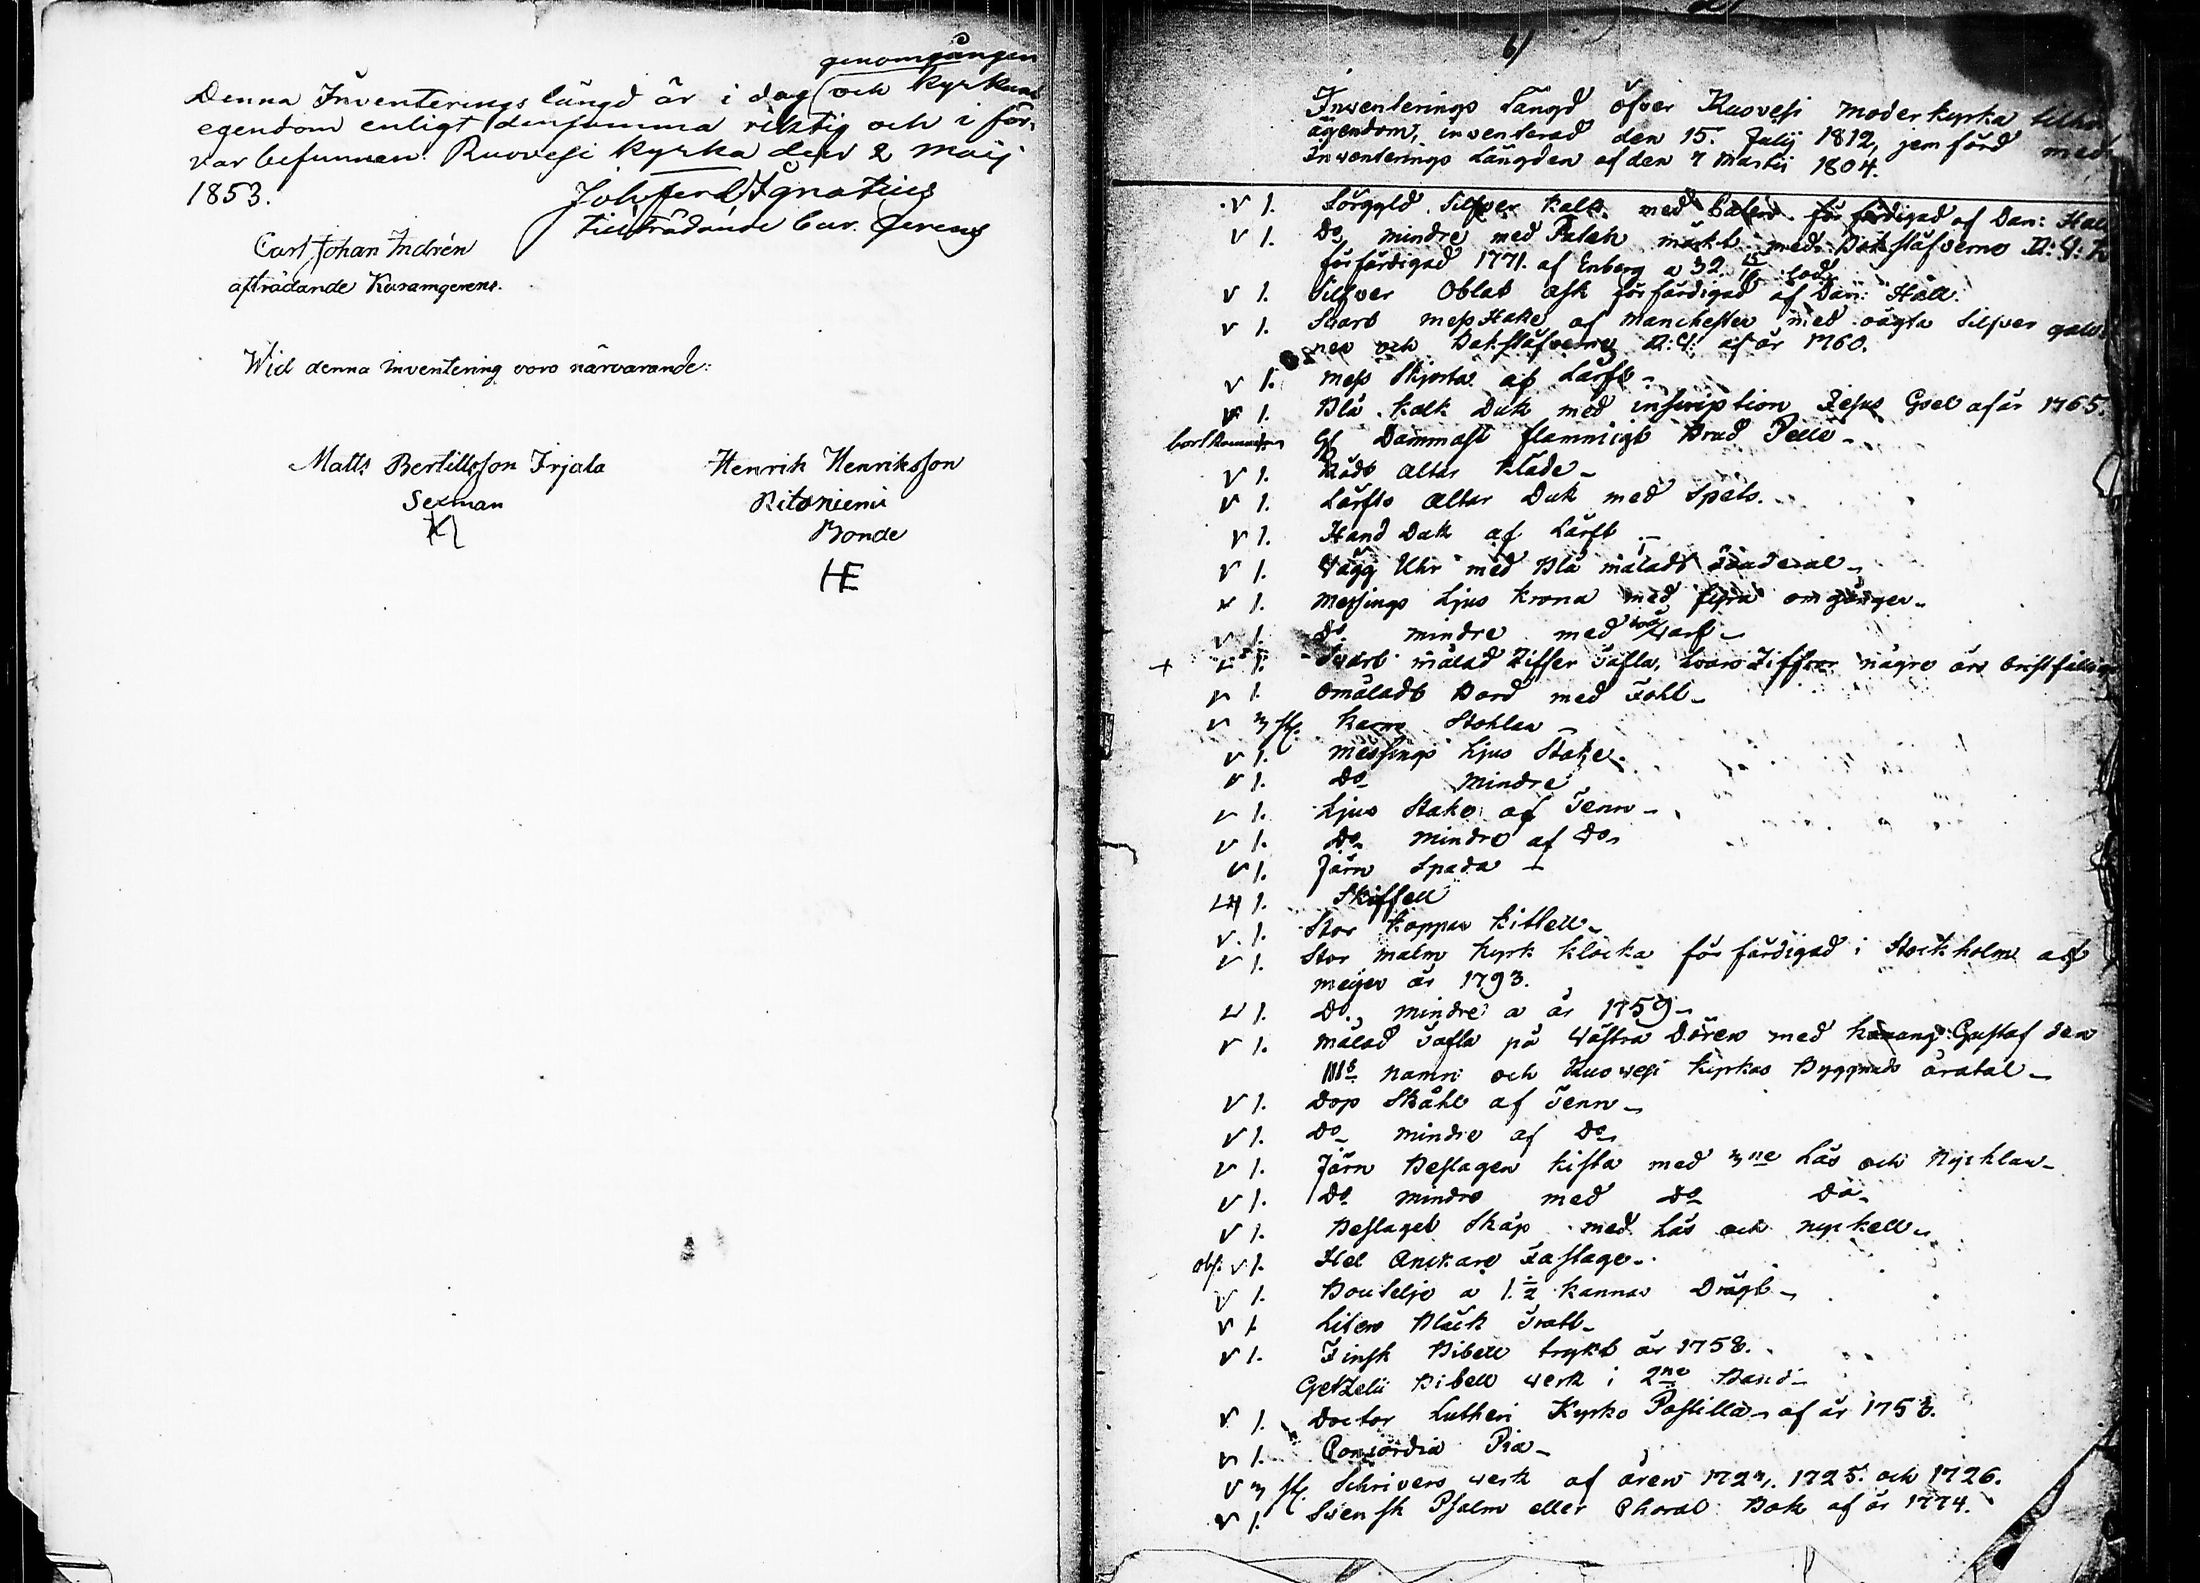 genomgången
Denna Inventerings längd är i dag och kyrkans
egendom enligt densamma riktig och i för-
var befunnen. Ruovesi kyrka den 2 Maij
1853. Joh ferd Ignatius
tillträdande Cur. Gerens
Carl Johan Indrén
afträdande Kuramgerens.
Wid denna inventering voro närvarande:
Matts Bertillsson Irjala Henrik Henriksson
Sexman Ritoniemi
Bonde
HE
6)
Inventerings Längd öfver Ruovesi moderkyrka
ägendom, inventerad den 15. Julij 1812, jemförd med
Inventerings Längden af den 7 Martii 1804.
v 1. Förgyld Silfver kalk med Paten förfärdigad af Dan: Häll
v 1. Do mindre med Paten märkt med Bokstäfverne
förfärdigad 1771. af Enberg a 32 15/16 lod
v 1. Silfver Oblat Ask förfärdigad af Dan: Häll.
v 1. Svart mess Hake af Manchester med oägta Silfver galo-
ner och Bokstäfverne af år 1760.
v 1. mess Skjorta af Lärft
v 1. Blå kalk Duk med inscription Jesus af år 1765.
bortkommen Gl Dammast flammigt Brud Pelle
v 1. Rödt Altar kläde
v 1. Lärfts Altar Duk med Spets.
v 1. Hand Duk af Lärft
v 1. Vägg Uhr med Blå måladt foderal
v 1. Messings Ljus krona med fyra omgånger
v 1. Do mindre med två Varf
+ v 1. Svart målad Ziffer Tafla, hvars Ziffror någre äro bristfällige
v 1. Omåladt Bord med Fohl
v 3 st. Karm Stohlar
v 1. Messings Ljus Stake
v 1. Do mindre
v 1. Ljus Stake af Tenn
v 1. Do mindre af Do
v 1. Järn Spada
1. Skiffel
v. 1. Stor koppar kittell
v 1. Stor malm kyrk klocka förfärdigad i Stockholm af
meijer år 1793.
v 1. Do mindre a år 1759
v 1. målad Tafla på Västra Dören med konung Gustaf den
IIIs namn och Ruovesi kyrkas Byggnads åratal
v 1. Dop Skåhl af Tenn
v 1. Do mindre af Do
v 1. Järn Beslagen kista med 3ne Lås och Nycklar
v 1. Do mindre med Do Do
v 1. Beslaget Skåp med Lås och nyckell
obs. v 1. Hel Anckare Fastage
v 1. Boutelje a 1 1/2 kannas Drägt
v 1 Liten Bläck Tratt
v 1. Finsk Bibell tryckt år 1758.
Getzelii Bibell Verk i 2ne Band
v 1. Doctor Lutheri Kyrko Postilla af år 1753.
v 1. Concordia Pia
v 3 st. Schrivers verk af åren 1723, 1725. och 1726.
v 1. Svensk Psalm eller Choral Bok af år 1774.